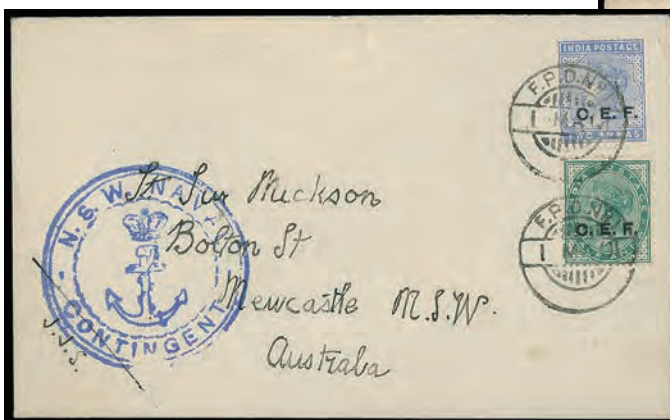 INDIA POSTAGE
C. E. F.
TWO ANNAS
F.P.O. No
1 MA
C. E. F.
F.P.O. No
1
N.S.W. NAVAL
CONTINGENT
Bolton St
Newcastle N.S.W.
Australia
J.J.S.